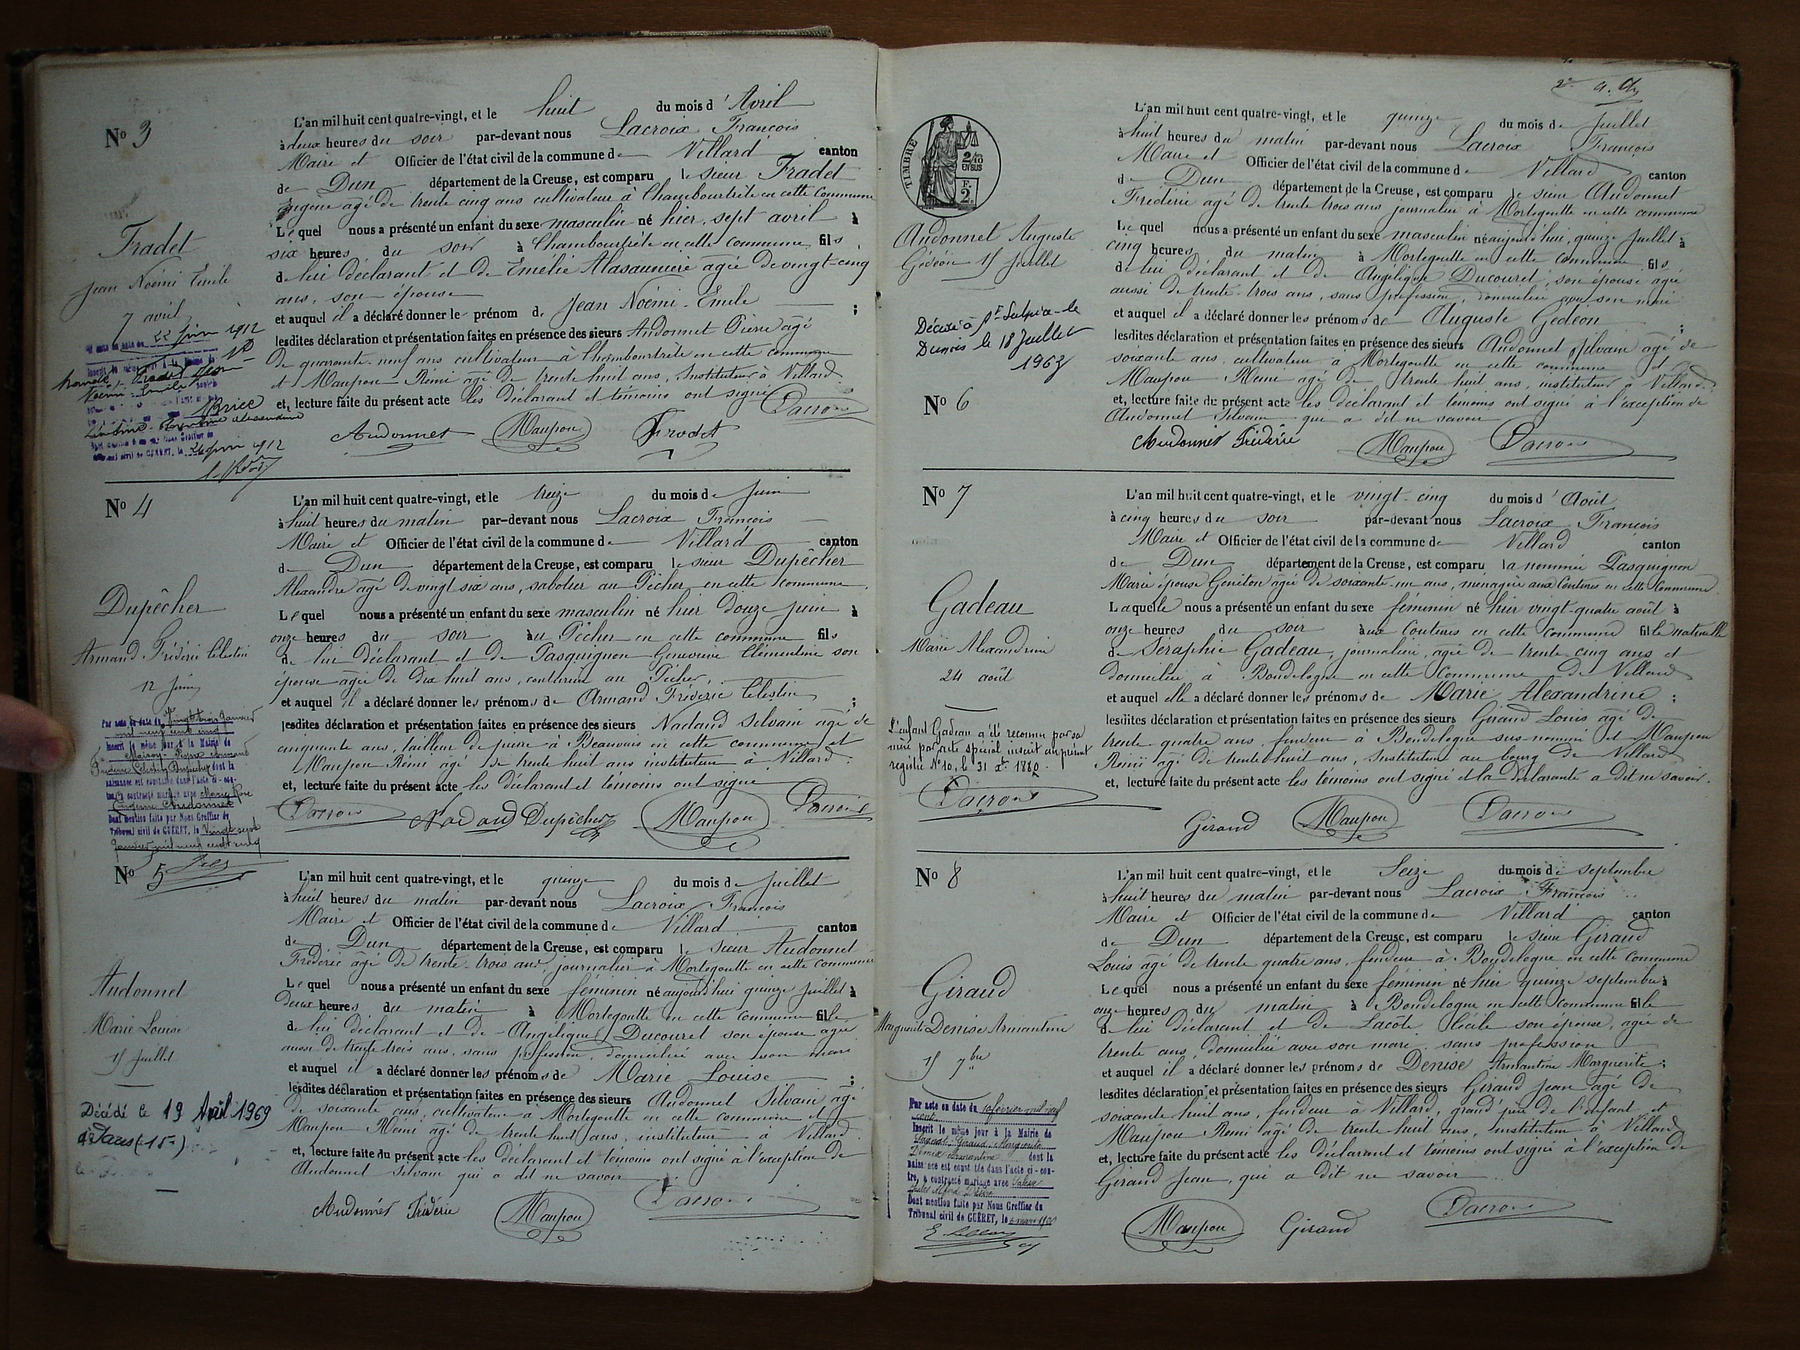 N° 3
Fradet
Jean Noémi Emile
7 avril
22 juin 1912
L'an mil huit cent quatre-vingt, et le huit du mois d'Avril
à deux heures du soir par-devant nous Lacroix François
Maire et Officier de l'état civil de la commune de Villard canton
de Dun département de la Creuse, est comparu le sieur Fradet
Eugène agé de trente cinq ans cultivateur à en cette commune
Lequel nous a présenté un enfant du sexe masculin né hier, sept avril à
six heures du soir à en cette commune, fils
de lui déclarant et de Emélie agée de vingt-cinq
ans, son épouse
et auquel il a déclaré donner le prénom de Jean Noémi Emile ;
lesdites déclaration et présentation faites en présence des sieurs Audonnet Pierre agé
de quarante-neuf ans cultivateur à en cette commune
et Maupou Rémi agé de trente huit ans, Instituteur à Villard
et, lecture faite du présent acte les déclarant et témoins ont signé
Audonnet Maupou Fradet Lacroix
N° 4
Dupêcher
Armand Frédéric Célestin
12 Juin
L'an mil huit cent quatre-vingt, et le treize du mois de Juin
à huit heures du matin par-devant nous Lacroix François
Maire et Officier de l'état civil de la commune de Villard canton
de Dun département de la Creuse, est comparu le sieur Dupêcher
Alexandre agé de vingt six ans, sabotier au Pêcher en cette commune
Lequel nous a présenté un enfant du sexe masculin né hier douze juin à
onze heures du soir au Pêcher en cette commune fils
de lui déclarant et de Pasquignon Geneviève Clémentine son
épouse agée de dix huit ans, couturière au Pêcher
et auquel il a déclaré donner les prénoms de Armand Fréderic Célestin ;
lesdites déclaration et présentation faites en présence des sieurs Nadaud Silvain agé de
cinquante ans, tailleur de pierre à Beauvais en cette commune et
Maupou Rémi agé de trente huit ans instituteur à Villard
et, lecture faite du présent acte les déclarant et témoins ont signé
Lacroix Nadaud Dupêcher Maupou Lacroix
Par acte en date du vingt trois Janvier
mil neuf cent cinq
Inscrit le même jour à la Mairie de
dont la
naissance est constatée dans l'acte ci-con-
tre, a contracté mariage avec Marie
Audonnet
Dont mention faite par Nous Greffier du
Tribunal civil de GUÉRET, le vingt sept
Janvier mil neuf cent cinq
N° 5
Audonnet
Marie Louise
15 Juillet
Décédé le 19 Avril 1969
à Paris (15e)
L'an mil huit cent quatre-vingt, et le quinze du mois de Juillet
à huit heures du matin par-devant nous Lacroix François
Maire et Officier de l'état civil de la commune de Villard canton
de Dun département de la Creuse, est comparu le sieur Audonnet
Fréderic agé de trente-trois ans, journalier à Mortegoutte en cette commune
Lequel nous a présenté un enfant du sexe féminin né aujourd'hui quinze Juillet à
deux heures du matin à Mortegoutte en cette commune fille
de lui déclarant et de Angélique Ducouret son épouse agée
aussi de trente trois ans, sans profession, domiciliée avec son mari
et auquel il a déclaré donner les prénoms de Marie Louise ;
lesdites déclaration et présentation faites en présence des sieurs Audonnet Silvain agé
de soixante ans, cultivateur à Mortegoutte en cette commune et
Maupou Rémi agé de trente huit ans, instituteur à Villard
et, lecture faite du présent acte les déclarant et témoins ont signé à l'exception de
Audonnet Silvain qui a dit ne savoir
Audonnet Fréderic Maupou Lacroix
TIMBRE
2/10 EN SUS
F. 2.
Audonnet Auguste
Gédéon 15 Juillet
Décédé à St Sulpice le
Dunois le 18 Juillet
N° 6
L'an mil huit cent quatre-vingt, et le quinze du mois de Juillet
à huit heures du matin par-devant nous Lacroix François
Maire et Officier de l'état civil de la commune de Villard canton
de Dun département de la Creuse, est comparu le sieur Audonnet
Fréderic agé de trente trois ans journalier à Mortegoutte en cette commune
Lequel nous a présenté un enfant du sexe masculin né aujourd'hui, quinze Juillet à
cinq heures du matin à Mortegoutte en cette commune, fils
de lui déclarant et de Angélique Ducouret, son épouse agée
aussi de trente-trois ans, sans profession, domiciliée avec son mari
et auquel il a déclaré donner les prénoms de Auguste Gédéon ;
lesdites déclaration et présentation faites en présence des sieurs Audonnet Silvain agé de
soixante ans, cultivateur à Mortegoutte en cette commune et de
Maupou Rémi agé de trente huit ans, instituteur à Villard
et, lecture faite du présent acte les déclarant et témoins ont signé à l'exception de
Audonnet Silvain qui a dit ne savoir
Audonnet Fréderic Maupou Lacroix
N° 7
Gadeau
Marie Alexandrine
24 août
L'enfant Gadeau a été reconnu par sa
mère par acte spécial inscrit au présent
registre N° 10, le 31
Lacroix
L'an mil huit cent quatre-vingt, et le vingt-cinq du mois d'Août
à cinq heures du soir par-devant nous Lacroix François
Maire et Officier de l'état civil de la commune de Villard canton
de Dun département de la Creuse, est comparu la nommée Pasquignon
Marie épouse agée de soixante-un ans, ménagère aux Coutures en cette commune
Laquelle nous a présenté un enfant du sexe féminin né hier vingt-quatre août à
onze heures du soir aux Coutures en cette commune fille naturelle
de Séraphie Gadeau, journalière, agée de trente cinq ans et
domiciliée à Boudelogne en cette commune de Villard
et auquel elle a déclaré donner les prénoms de Marie Alexandrine ;
lesdites déclaration et présentation faites en présence des sieurs Giraud Louis agé de
trente quatre ans, fendeur à Boudelogne sus-nommé et Maupou
Rémi agé de trente huit ans, Instituteur au bourg de Villard
et, lecture faite du présent acte les témoins ont signé et la déclarante a dit ne savoir.
Giraud Maupou Lacroix
N° 8
Giraud
Marguerite Denise Armantine
15 7bre
L'an mil huit cent quatre-vingt, et le Seize du mois de septembre
à huit heures du matin par-devant nous Lacroix François
Maire et Officier de l'état civil de la commune de Villard canton
de Dun département de la Creuse, est comparu le sieur Giraud
Louis agé de trente quatre ans, fendeur à Boudelogne en cette commune
Lequel nous a présenté un enfant du sexe féminin né hier quinze septembre à
onze heures du matin à Boudelogne en cette commune fille
de lui déclarant et de Lacôte Cécile son épouse, agée de
trente ans, domiciliée avec son mari, sans profession
et auquel il a déclaré donner les prénoms de Denise Armantine Marguerite ;
lesdites déclaration et présentation faites en présence des sieurs Giraud Jean agé de
soixante huit ans, fendeur à Villard, grand'père de l'enfant et
Maupou Rémi agé de trente huit ans, Instituteur à Villard
et, lecture faite du présent acte les déclarant et témoins ont signé à l'exception de
Giraud Jean, qui a dit ne savoir
Maupou Giraud Lacroix
Par acte en date du 10 février mil neuf
cent
Inscrit le même jour à la Mairie de
Giraud Marguerite
Denise Armantine dont la
naissance est constatée dans l'acte ci-con-
tre, a contracté mariage avec
Dont mention faite par Nous Greffier du
Tribunal civil de GUÉRET, le